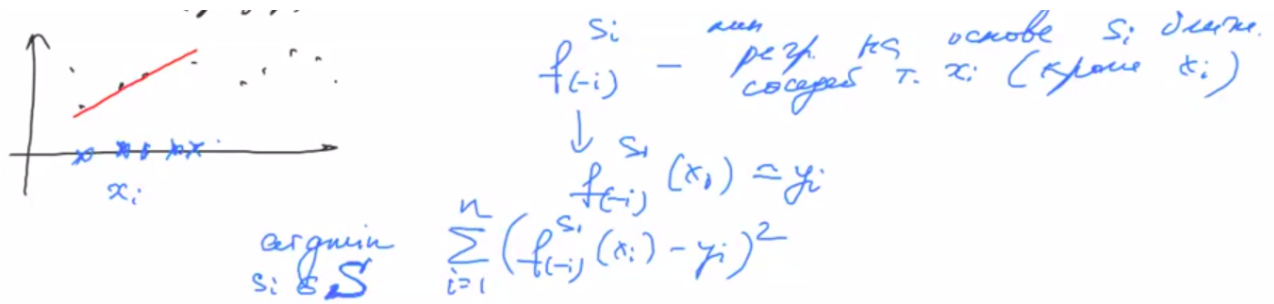 f₍₋ᵢ₎^{Sᵢ} — лин. регр. на основе Sᵢ ближ.
соседей т. xᵢ (кроме xᵢ)
↓
f₍₋ᵢ₎^{Sᵢ} (xᵢ) ≈ yᵢ
xᵢ
argmin ∑_{i=1}^{n} (f₍₋ᵢ₎^{Sᵢ} (xᵢ) − yᵢ)²
Sᵢ ∈ S